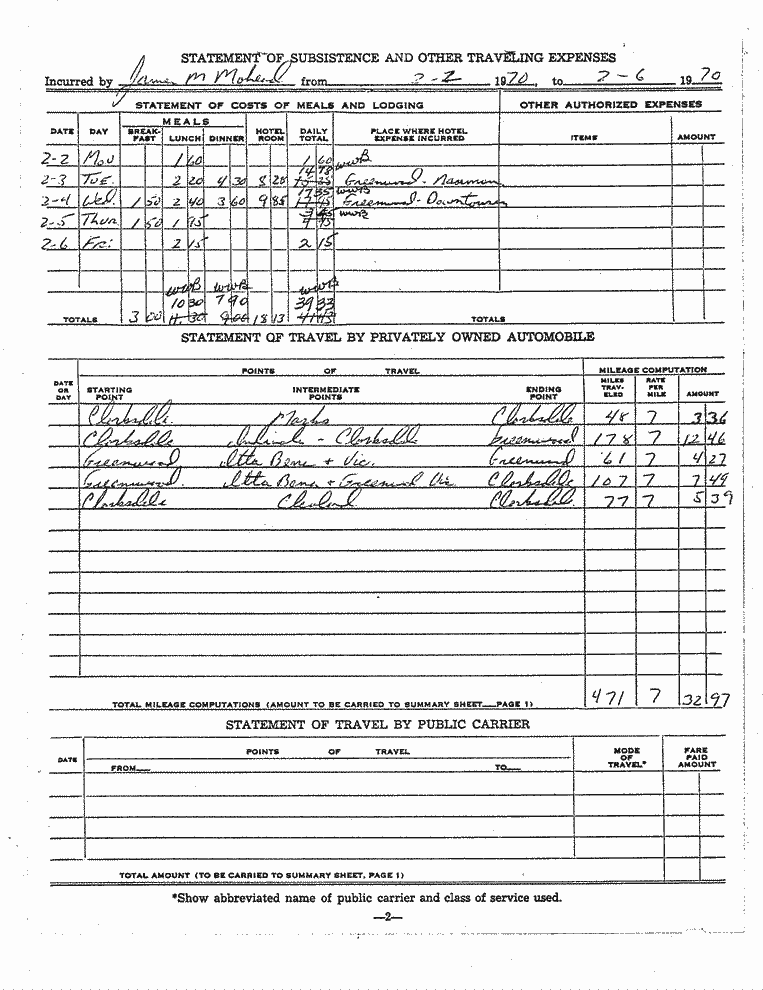 STATEMENT OF SUBSISTENCE AND OTHER TRAVELING EXPENSES
Incurred by James M Mohead from 2-2 1970, to 2-6 1970
STATEMENT OF COSTS OF MEALS AND LODGING OTHER AUTHORIZED EXPENSES
MEALS
DATE DAY BREAK-FAST LUNCH DINNER HOTEL ROOM DAILY TOTAL PLACE WHERE HOTEL EXPENSE INCURRED ITEMS AMOUNT
2-2 Mon 1 60 1 60 WWB
14 78
2-3 Tue. 2 20 4 30 8 28 Greenwood -
17 35 WWB
2-4 Wed. 1 50 2 40 3 60 9 85 Greenwood - Downtowner
3 45 WWB
2-5 Thur 1 50 1 95
2-6 Fri. 2 15 2 15
WWB WWB WWB
10 30 7 90 39 33
TOTALS 3 00 11.30 9.00 18 13 41 43 TOTALS
STATEMENT OF TRAVEL BY PRIVATELY OWNED AUTOMOBILE
POINTS OF TRAVEL MILEAGE COMPUTATION
DATE OR DAY STARTING POINT INTERMEDIATE POINTS ENDING POINT MILES TRAV-ELED RATE PER MILE AMOUNT
Clarksdale Marks Clarksdale 48 7 3 36
Clarksdale - Clarksdale Greenwood 178 7 12 46
Greenwood Itta Bena + Vic. Greenwood 61 7 4 27
Greenwood Itta Bena + Greenwood Vic Clarksdale 107 7 7 49
Clarksdale Cleveland Clarksdale 77 7 5 39
TOTAL MILEAGE COMPUTATIONS (AMOUNT TO BE CARRIED TO SUMMARY SHEET—PAGE 1) 471 7 32 97
STATEMENT OF TRAVEL BY PUBLIC CARRIER
DATE POINTS OF TRAVEL MODE OF TRAVEL* FARE PAID AMOUNT
FROM— TO—
TOTAL AMOUNT (TO BE CARRIED TO SUMMARY SHEET, PAGE 1)
*Show abbreviated name of public carrier and class of service used.
—2—